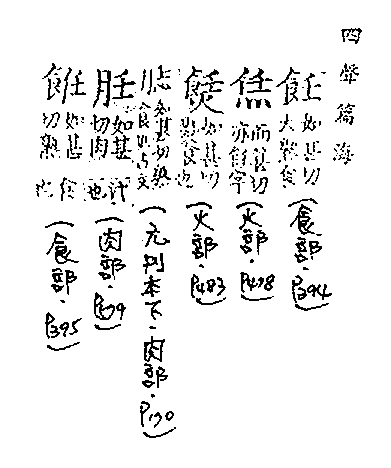 四聲篇海
飪 如甚切大熟食 (食部.P394)
而甚切亦飪字 (火部.P478)
如甚切 熟食也 (火部.P483)
如甚切熟食也 古文 (元刊本下.肉部.P170)
如甚切肉 也 (肉部.
餁 如甚切熟食也 (食部.P395)